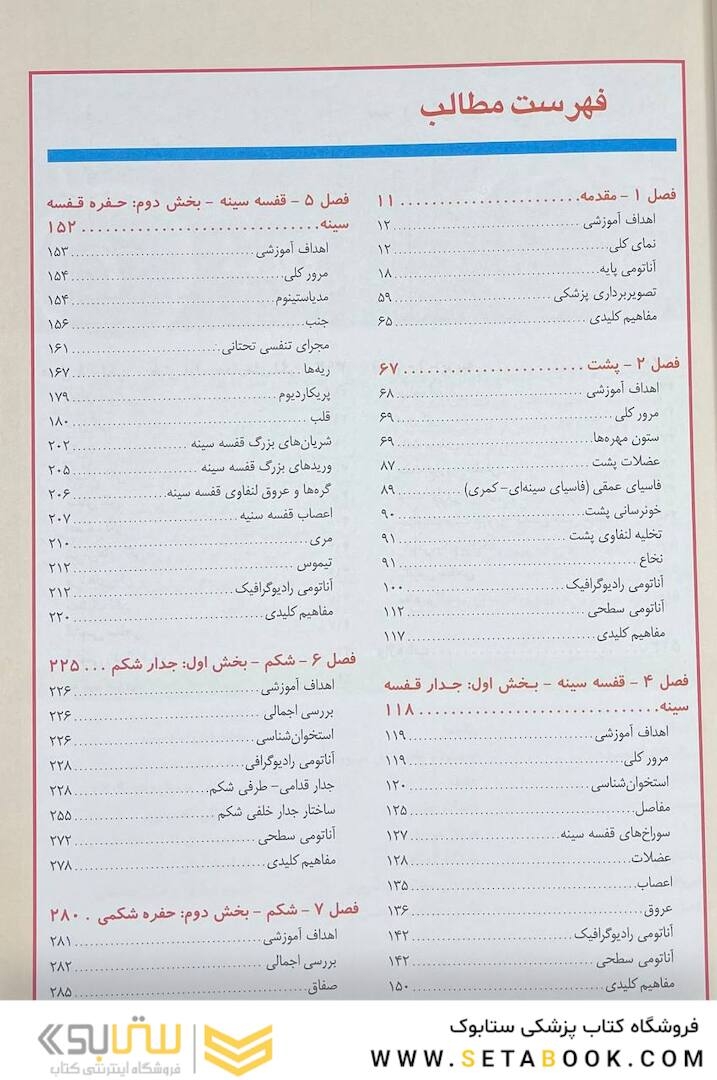 فهرست مطالب
فصل ۱ - مقدمه ........ ۱۱
اهداف آموزشی ........ ۱۲
نمای کلی ........ ۱۲
آناتومی پایه ........ ۱۸
تصویربرداری پزشکی ........ ۵۹
مفاهیم کلیدی ........ ۶۵
فصل ۲ - پشت ........ ۶۷
اهداف آموزشی ........ ۶۸
مرور کلی ........ ۶۹
ستون مهره‌ها ........ ۶۹
عضلات پشت ........ ۸۷
فاسیای عمقی (فاسیای سینه‌ای- کمری) ........ ۸۹
خونرسانی پشت ........ ۹۰
تخلیه لنفاوی پشت ........ ۹۱
نخاع ........ ۹۱
آناتومی رادیوگرافیک ........ ۱۰۰
آناتومی سطحی ........ ۱۱۲
مفاهیم کلیدی ........ ۱۱۷
فصل ۴ - قفسه سینه - بخش اول: جدار قفسه
سینه ........ ۱۱۸
اهداف آموزشی ........ ۱۱۹
مرور کلی ........ ۱۱۹
استخوان‌شناسی ........ ۱۲۰
مفاصل ........ ۱۲۵
سوراخ‌های قفسه سینه ........ ۱۲۷
عضلات ........ ۱۲۸
اعصاب ........ ۱۳۵
عروق ........ ۱۳۶
آناتومی رادیوگرافیک ........ ۱۴۲
آناتومی سطحی ........ ۱۴۲
مفاهیم کلیدی ........ ۱۵۰
فصل ۵ - قفسه سینه - بخش دوم: حفره قفسه
سینه ........ ۱۵۲
اهداف آموزشی ........ ۱۵۳
مرور کلی ........ ۱۵۴
مدیاستینوم ........ ۱۵۴
جنب ........ ۱۵۶
مجرای تنفسی تحتانی ........ ۱۶۱
ریه‌ها ........ ۱۶۷
پریکاردیوم ........ ۱۷۹
قلب ........ ۱۸۰
شریان‌های بزرگ قفسه سینه ........ ۲۰۲
وریدهای بزرگ قفسه سینه ........ ۲۰۵
گره‌ها و عروق لنفاوی قفسه سینه ........ ۲۰۶
اعصاب قفسه سنیه ........ ۲۰۷
مری ........ ۲۱۰
تیموس ........ ۲۱۲
آناتومی رادیوگرافیک ........ ۲۱۲
مفاهیم کلیدی ........ ۲۲۰
فصل ۶ - شکم - بخش اول: جدار شکم ... ۲۲۵
اهداف آموزشی ........ ۲۲۶
بررسی اجمالی ........ ۲۲۶
استخوان‌شناسی ........ ۲۲۶
آناتومی رادیوگرافی ........ ۲۲۸
جدار قدامی- طرفی شکم ........ ۲۲۸
ساختار جدار خلفی شکم ........ ۲۵۵
آناتومی سطحی ........ ۲۷۲
مفاهیم کلیدی ........ ۲۷۸
فصل ۷ - شکم - بخش دوم: حفره شکمی . ۲۸۰
اهداف آموزشی ........ ۲۸۱
بررسی اجمالی ........ ۲۸۲
صفاق ........ ۲۸۵
فروشگاه کتاب پزشکی ستابوک
WWW.SETABOOK.COM
ستابوک
فروشگاه اینترنتی کتاب